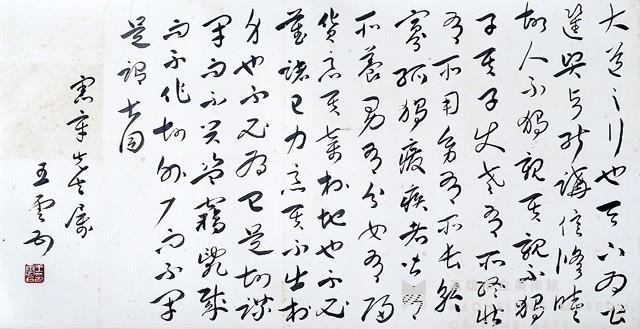 大道之行也天下為公
選賢與能講信修睦
故人不獨親其親不獨
子其子使老有所終壯
有所用幼有所長鰥
寡孤獨廢疾者皆有
所養男有分女有歸
貨惡其棄於地也不必
藏諸己力惡其不出於
身也不必為己是故謀
閉而不興盜竊亂賊
而不作故外戶而不閉
是謂大同
憲章先生屬
王雲五
高雄市立美術館